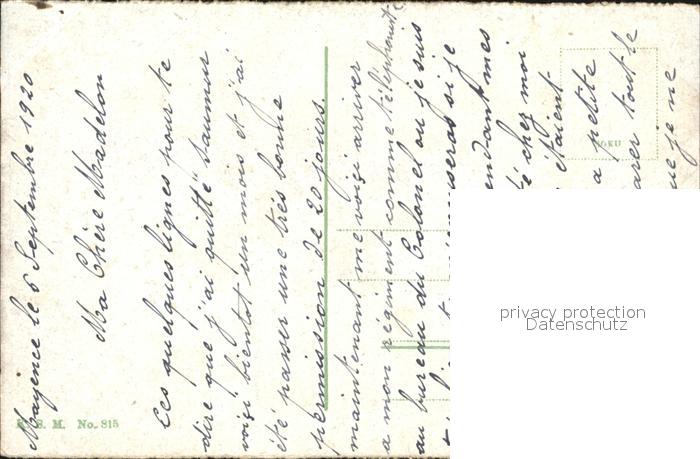 Mayence le 6 Septembre 1920
Ma Chère Madelon
Ces quelques lignes pour te
dire que j'ai quitté Saumur
voiçi bientot un mois et j'ai
été passer une très bonne
permission de 20 jours.
maintenant me voiçi arriver
a mon régiment comme téléphoniste
au bureau du Colonel ou je suis
si je
pendant mes
chez moi
étaient
a petite
tout le
que je ne
R. S. M. No. 815
privacy protection
Datenschutz